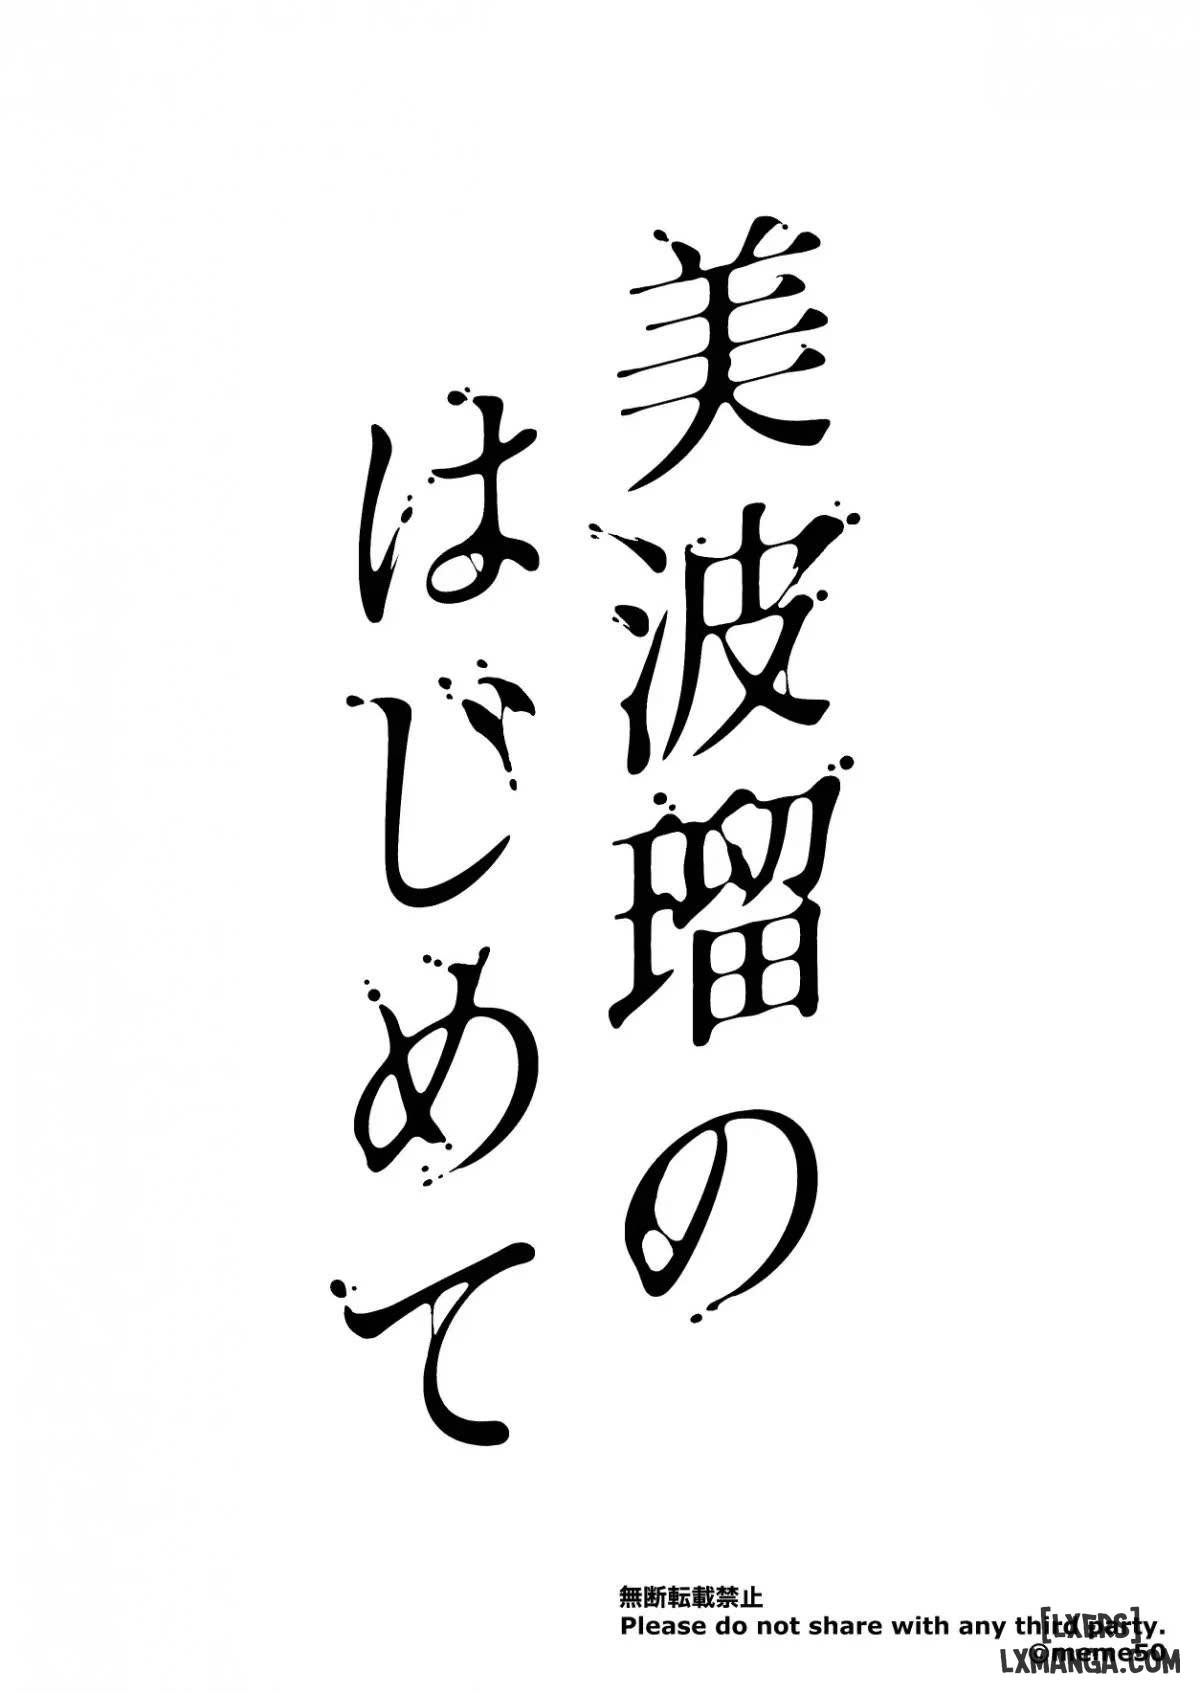 美波瑠の
はじめて
無断転載禁止
Please do not share with any third party.
©meme50
[LXERS]
LXMANGA.COM